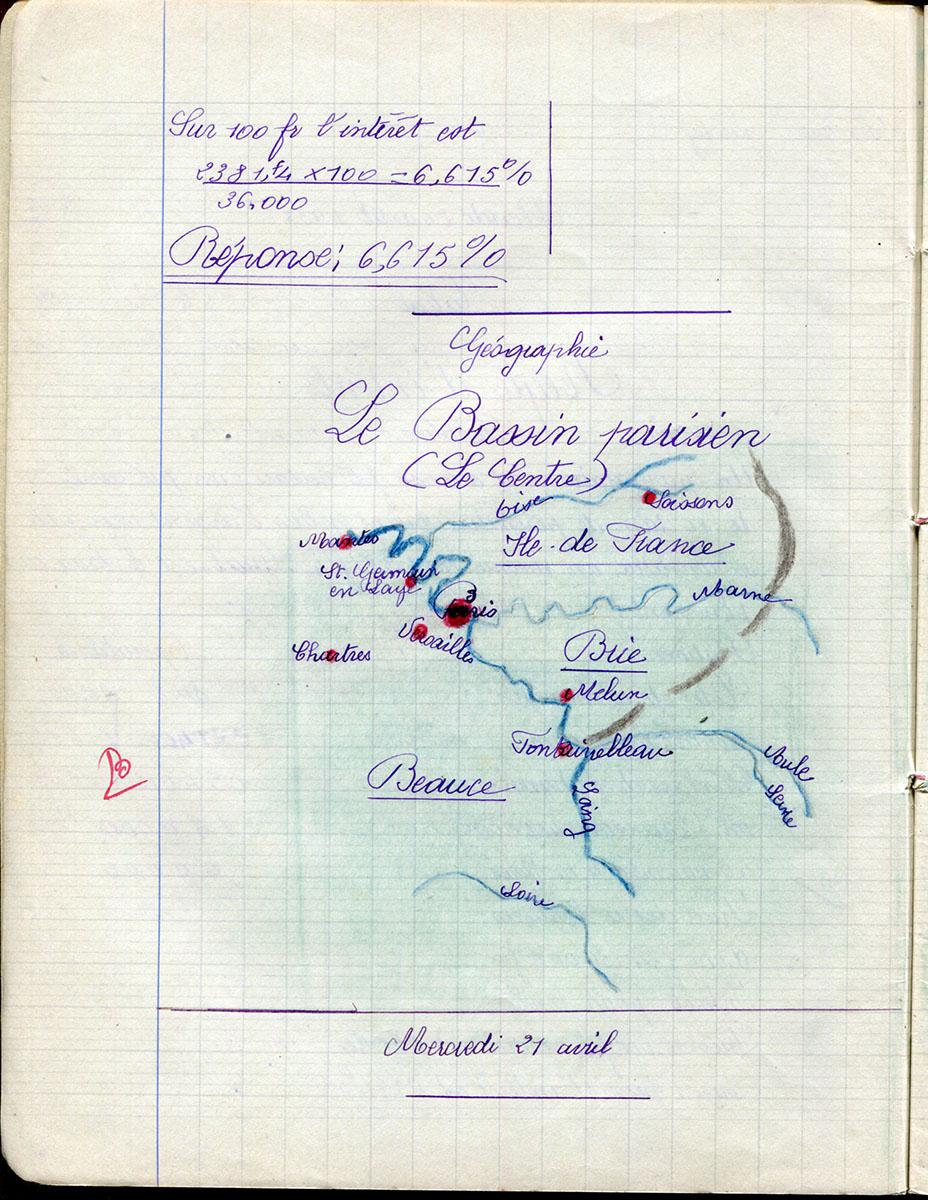 Sur 100 fr l'intérêt est
2381,f4 × 100 = 6,615 %
36.000
Réponse; 6,615 %
Géographie
Le Bassin parisien
(Le Centre)
Oise
Soissons
Mantes
Ile-de France
St. Germain
en Laye
Marne
Paris
Versailles
Chartres
Brie
Melun
Fontainebleau
Aube
Beauce
Seine
Loing
Loire
B
Mercredi 21 avril